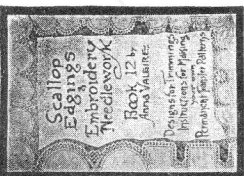 Scallop
Edgings
&
Embroidery
Needlework
Book 12 by
Anna VALEIRE:
Designs for Trimmings
Instructions for Making
your own
Perforated Transfer Patterns